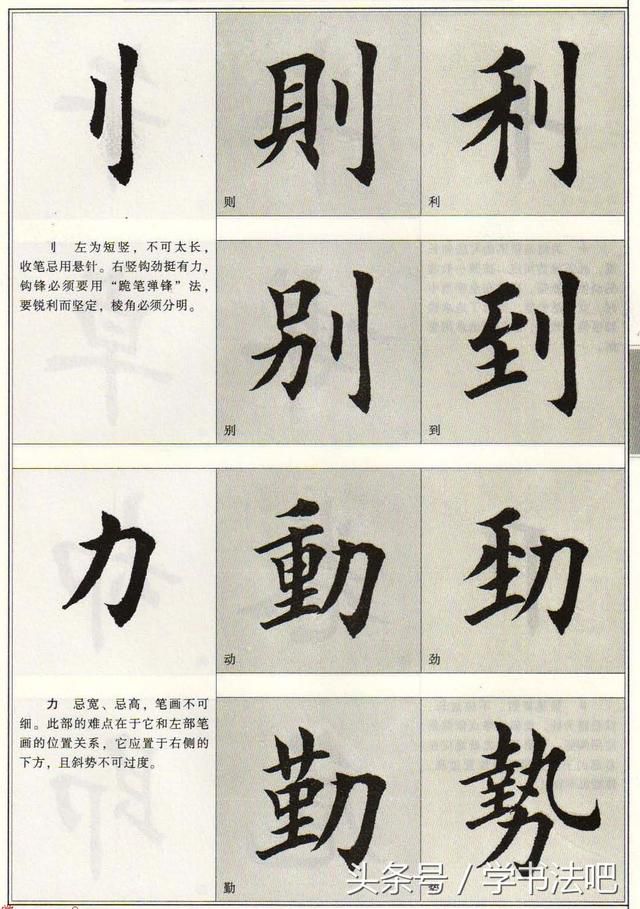 刂
則
利
则
利
刂 左为短竖，不可太长，
收笔忌用悬针。右竖钩劲挺有力，
钩锋必须要用“跪笔弹锋”法，
要锐利而坚定，棱角必须分明。
别
到
别
到
力
動
勁
动
劲
力 忌宽、忌高，笔画不可
细。此部的难点在于它和左部笔
画的位置关系，它应置于右侧的
下方，且斜势不可过度。
勤
勢
勤
头条号／学书法吧